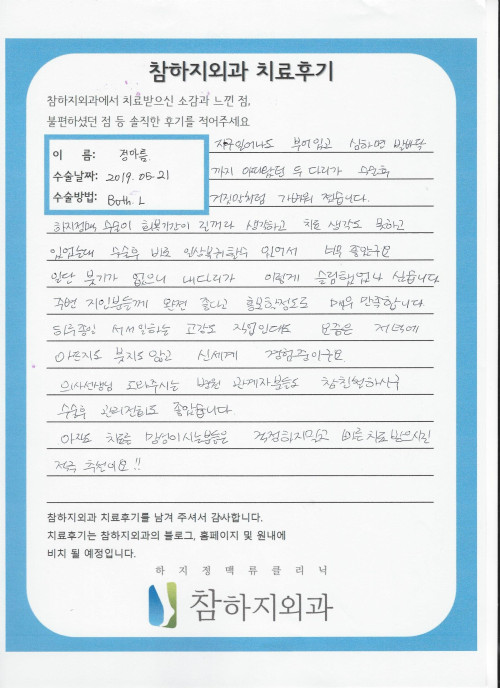 참하지외과 치료후기
참하지외과에서 치료받으신 소감과 느낀 점,
불편하셨던 점 등 솔직한 후기를 적어주세요
이 름: 정아름
수술날짜: 2019. 05. 21
수술방법: Both. L
자구일어나도 부어있고 심하면 발바닥
까지 아파왔던 두 다리가 수술후
거짓말처럼 가벼워 졌습니다.
하지정맥 수술이 회복기간이 길꺼라 생각하고 치료 생각도 못하고
있었는데 수술후 바로 일상복귀할수 있어서 너무 좋았구요
일단 붓기가 없으니 내다리가 이렇게 슬림했었나 싶습니다
주변 지인분들께 완전 좋다고 홍보할정도로 매우 만족합니다
하루종일 서서일하는 고강도 직업인데도 요즘은 저녁에
아프지도 붓지도않고 신세계 경험중이구요
의사선생님 도와주시는 병원 관계자분들도 참친절하시구
수술후 관리진행도 좋았습니다
아직도 치료를 망설이시는분들은 걱정하지말고 빠른치료 받으시길
적극 추천이요!!
참하지외과 치료후기를 남겨 주셔서 감사합니다.
치료후기는 참하지외과의 블로그, 홈페이지 및 원내에
비치 될 예정입니다.
하지정맥류클리닉
참하지외과